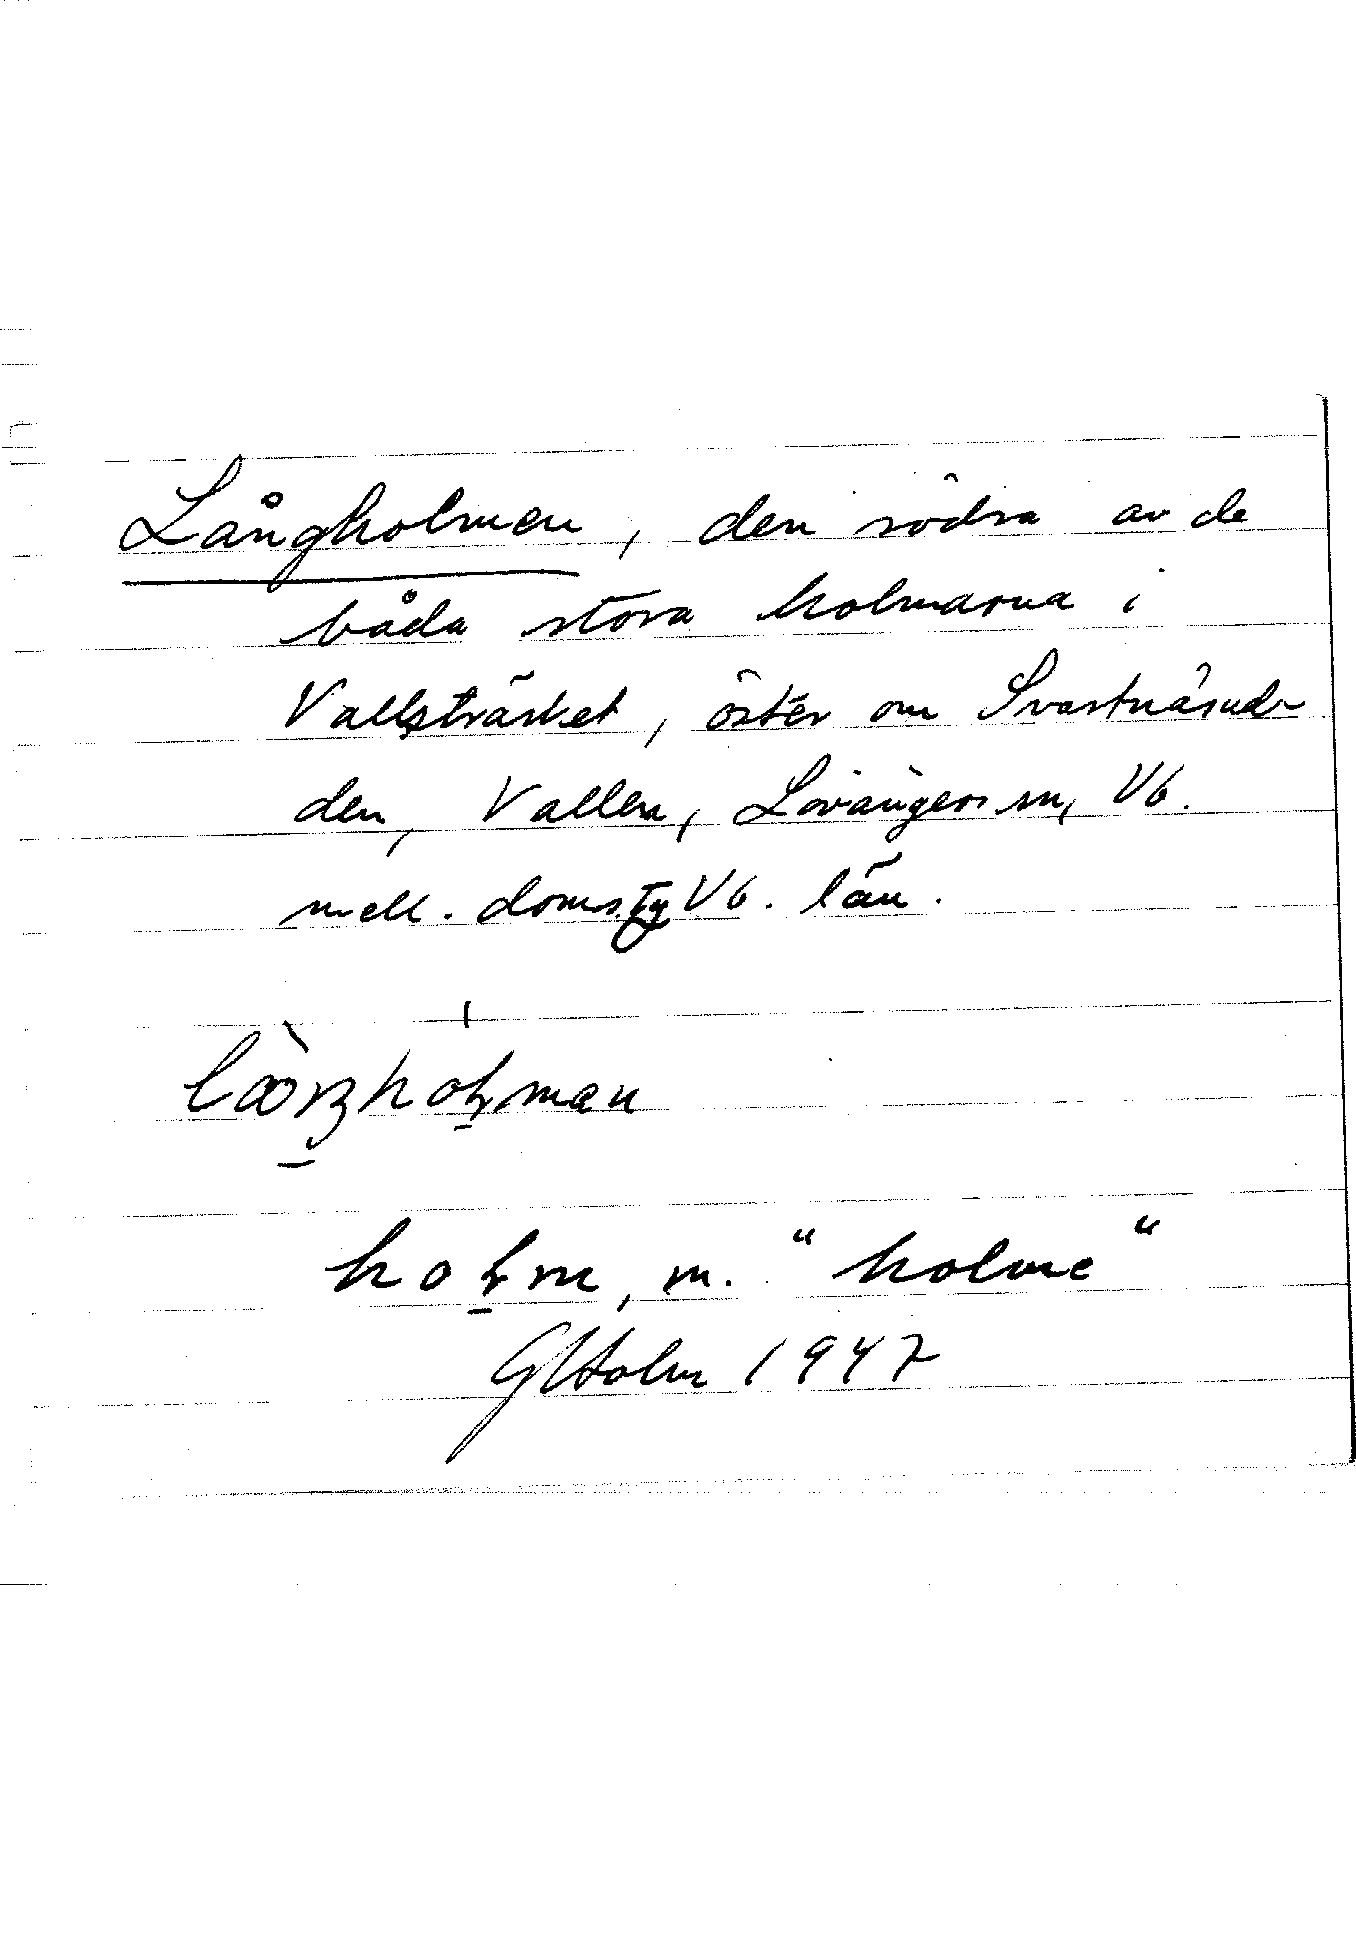 Långholmen, den södra av de
båda stora holmarna i
Vallsträsket, öster om Svartnäsud-
den, Vallen, Lövångers sn, Vb.
mell. doms. Vb. län.
holm, m. "holme"
GHolm 1947